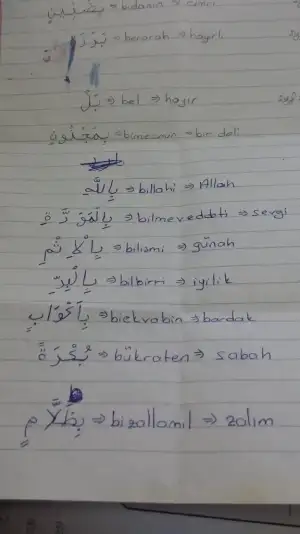 بَرَرَةٍ ⇒ berarah ⇒ hayırlı
بَلْ ⇒ bel ⇒ hayır
بِمَجْنُونٍ ⇒ bimecnun ⇒ bir deli
بِاللَّهِ ⇒ billahi ⇒ Allah
بِالْمَوَدَّةِ ⇒ bilmeveddeti ⇒ sevgi
بِالْإِثْمِ ⇒ bilismi ⇒ günah
بِالْبِرِّ ⇒ bilbirri ⇒ iyilik
بِأَكْوَابٍ ⇒ biekvabin ⇒ bardak
بُكْرَةً ⇒ bükraten ⇒ sabah
بِظَلَّامٍ ⇒ bizallamil ⇒ zalim